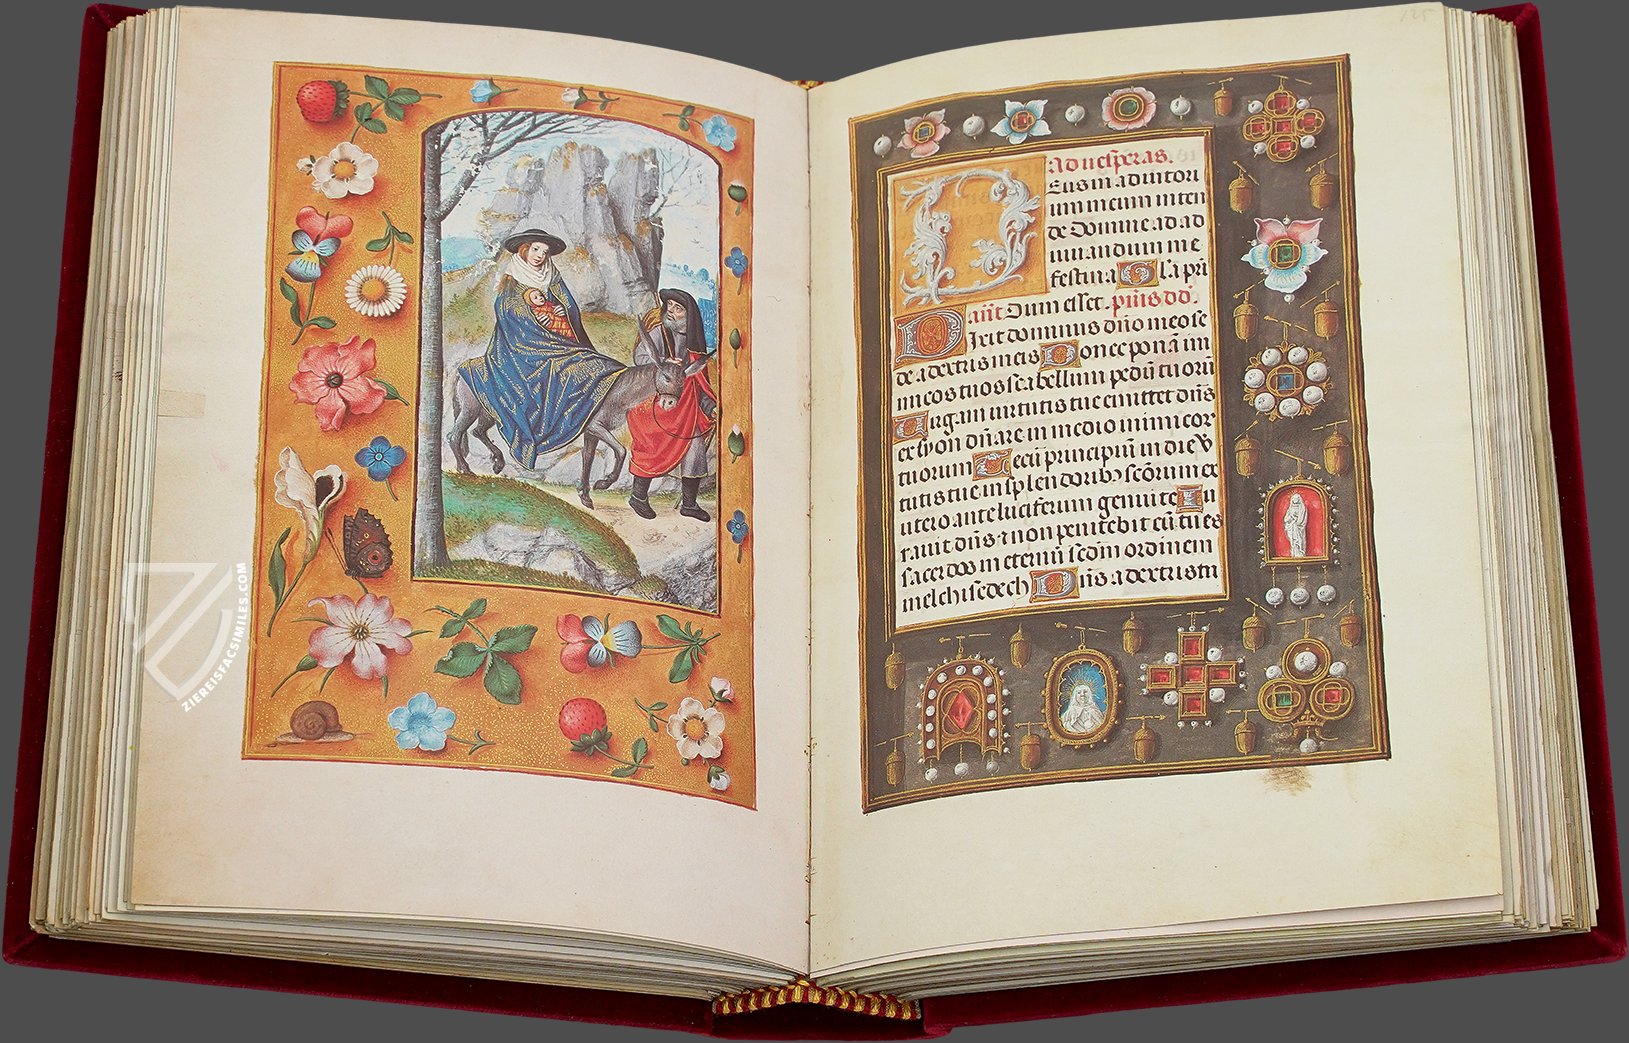 ZIEREISFACSIMILES.COM
125
ad uesperas.
Eus in adiutori
um meum inten
de Domine ad ad
iuuandum me
festina Gl'a pri
añt Dum esset. p̃us dd̃.
Dixit dominus dño meo se
de a dextris meis Donec ponã ini
micos tuos scabellum pedũ tuorũ
Uirgam uirtutis tue emittet dñs
ex syon dñare in medio inimicor
tuorum Tecũ principiũ in die uir
tutis tue in splendoribus sctõrum ex
utero ante luciferum genui te Iu
rauit dñs & non penitebit eũ tu es
sacerdos in eternũ scdm ordinem
melchisedech Dñs a dextris tui